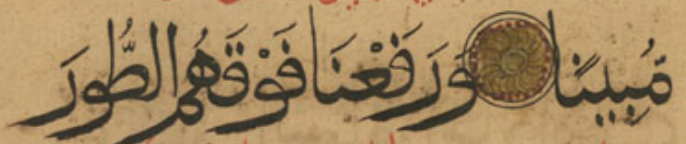 مُّبِينًا وَرَفَعْنَا فَوْقَهُمُ الطُّورَ